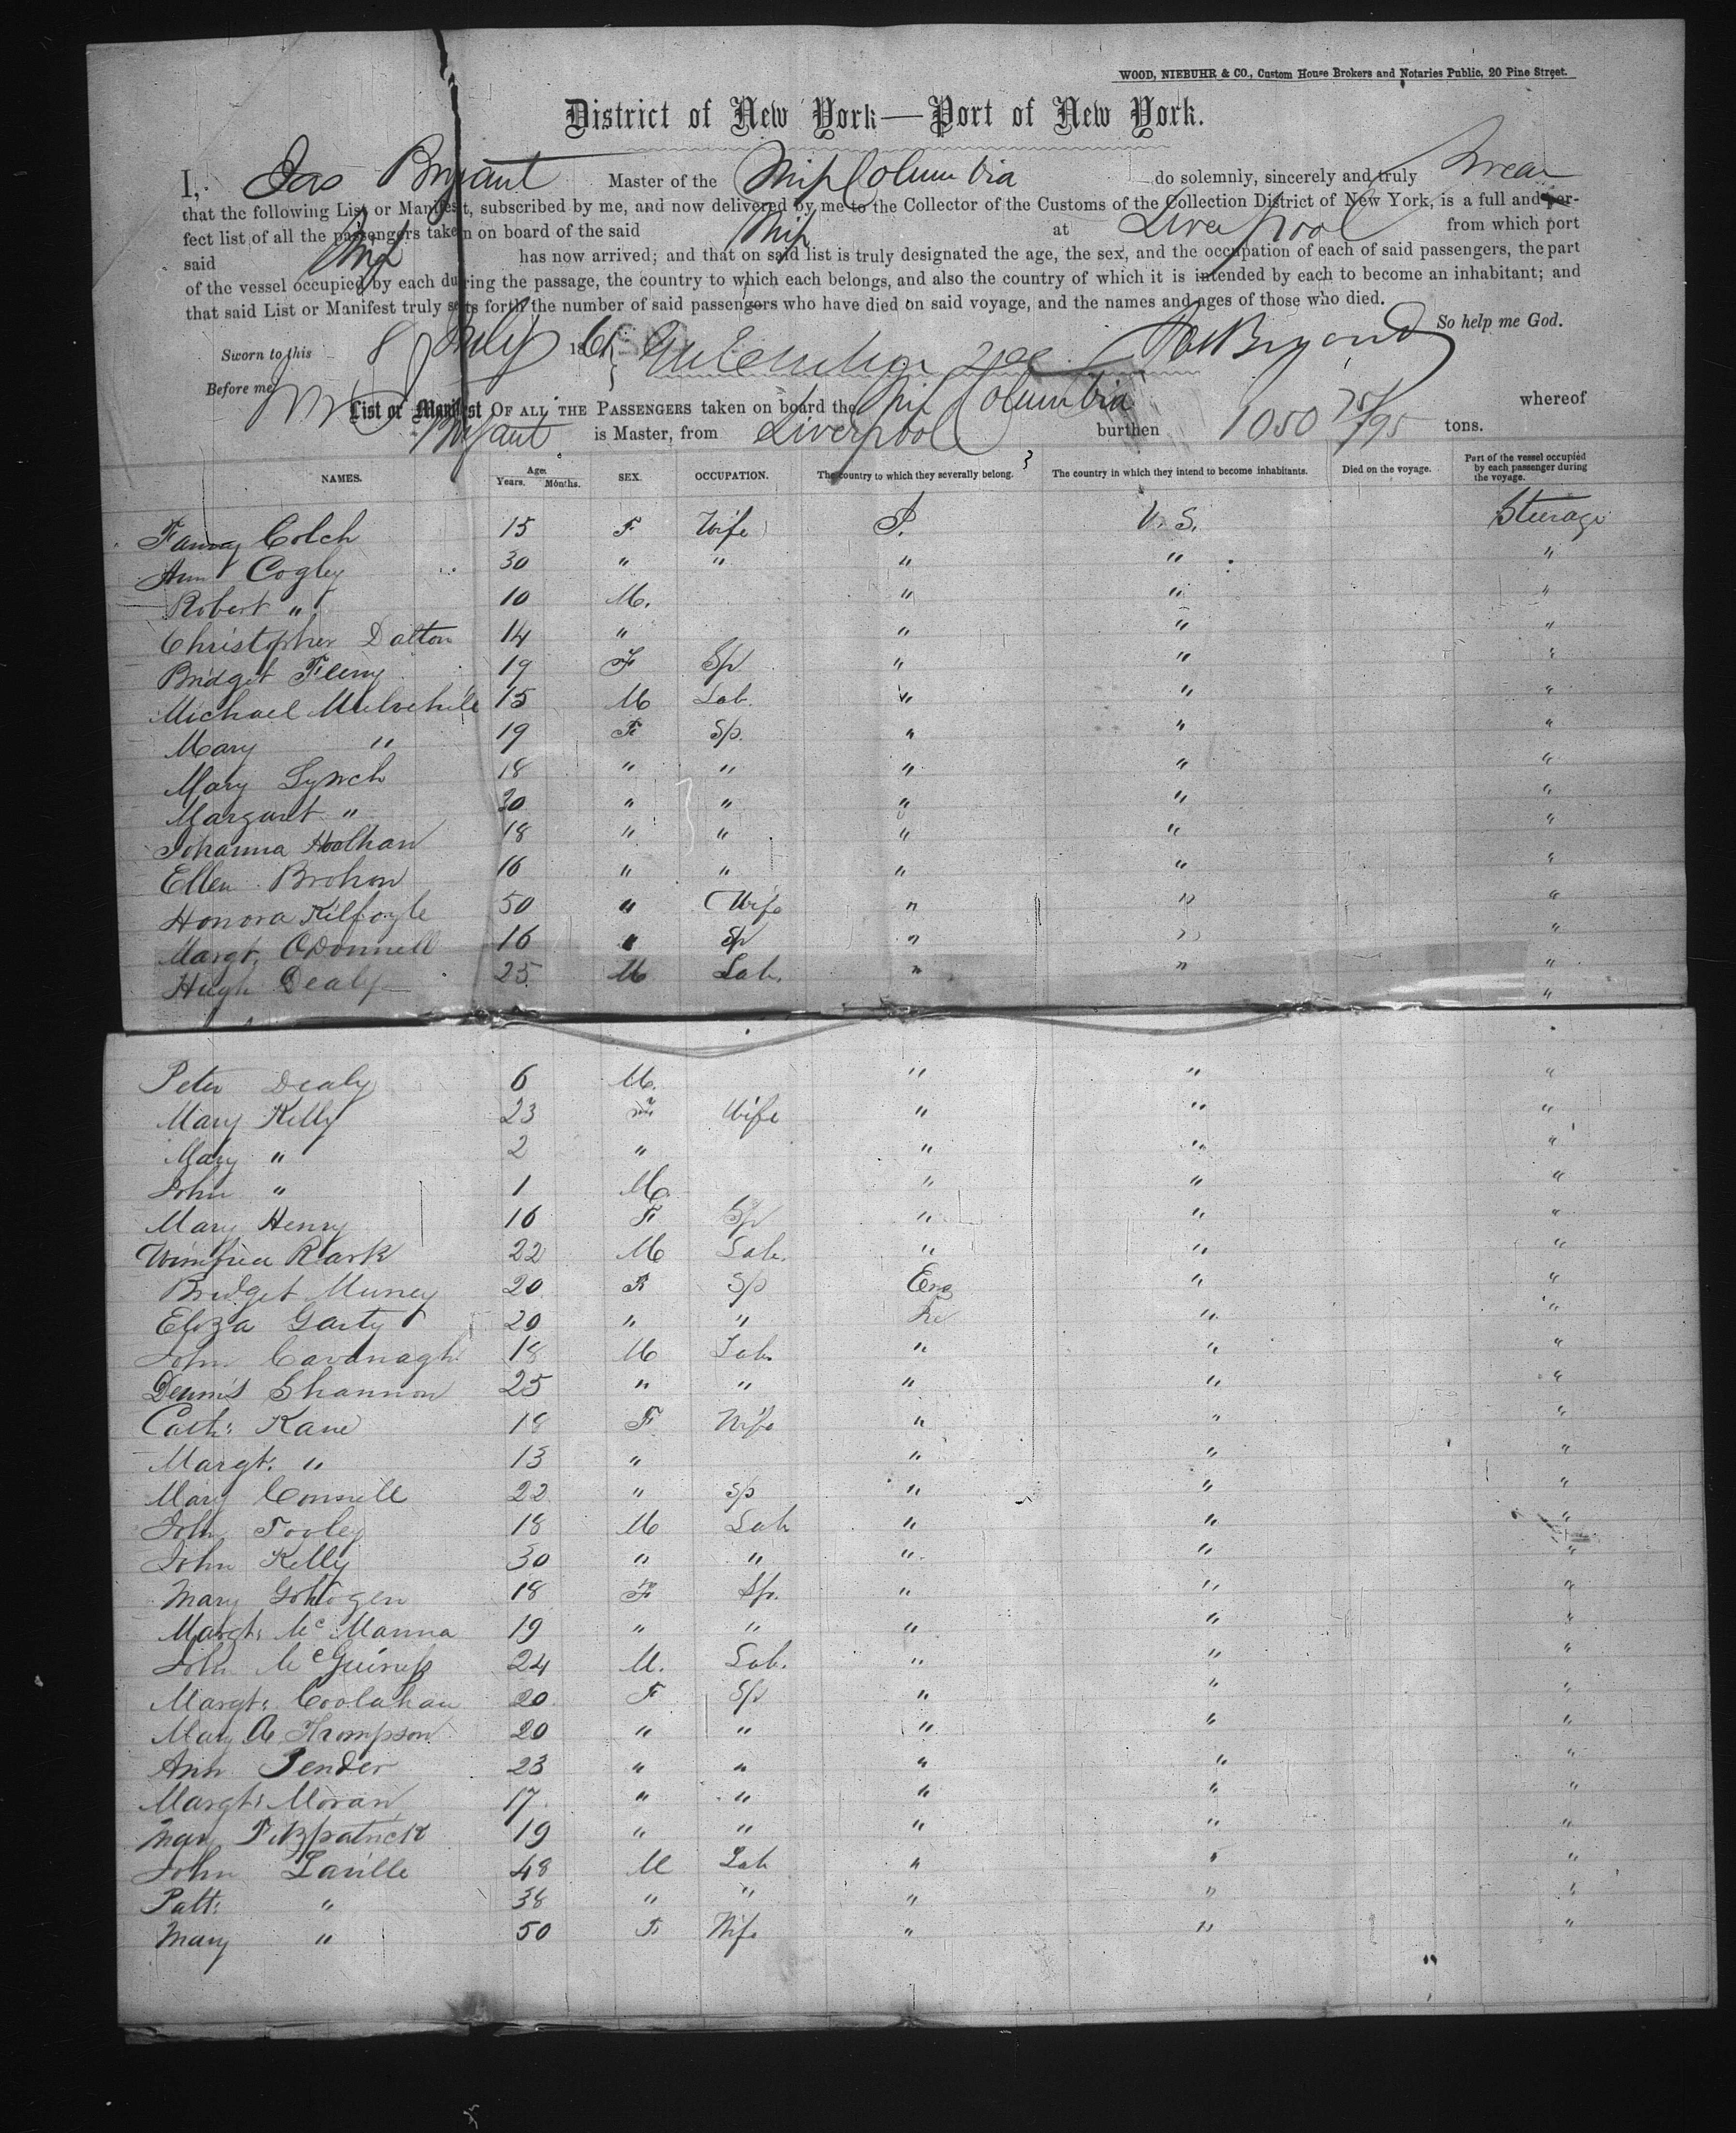 WOOD, NIEBUHR & CO., Custom House Brokers and Notaries Public, 20 Pine Street.
District of New York—Port of New York.
I, Jas Bryant Master of the Ship Columbia do solemnly, sincerely and truly swear
that the following List or Manifest, subscribed by me, and now delivered by me to the Collector of the Customs of the Collection District of New York, is a full and per-
fect list of all the passengers taken on board of the said Ship at Liverpool from which port
said Ship has now arrived; and that on said list is truly designated the age, the sex, and the occupation of each of said passengers, the part
of the vessel occupied by each during the passage, the country to which each belongs, and also the country of which it is intended by each to become an inhabitant; and
that said List or Manifest truly sets forth the number of said passengers who have died on said voyage, and the names and ages of those who died.
So help me God.
Sworn to this 8 July 186 Jas Bryant
Before me
List or Manifest OF ALL THE PASSENGERS taken on board the Ship Columbia whereof
Bryant is Master, from Liverpool burthen 1050 75/95 tons.
NAMES. Age: Years. Months. SEX. OCCUPATION. The country to which they severally belong. The country in which they intend to become inhabitants. Died on the voyage. Part of the vessel occupied by each passenger during the voyage.
Colch 15 F Wife U.S. Steerage
Ann Cogley 30 " " " " "
Robert " 10 M. " " "
Christopher Dalton 14 " " " "
Bridget 19 F Sp " " "
Michael Mulvehill 15 M Lab. " " "
Mary " 19 F Sp. " " "
Mary Lynch 18 " " " " "
Margaret " 20 " " " " "
Johanna Hoolhan 18 " " " " "
Ellen Brohon 16 " " " " "
Honora Kilfoyle 50 " Wife " " "
Margt. O'Donnell 16 " Sp " " "
Hugh Dealy 25 M Lab. " " "
Peter Dealy 6 M. " " "
Mary Kelly 23 Wife " " "
Mary " 2 " " " "
John " 1 M. " " "
Mary Henry 16 F Sp " " "
22 M Lab. " " "
Bridget Murney 20 F Sp Eng " "
Eliza Garty 20 " " " "
John Cavanagh 18 M Lab. " " "
Dennis Shannon 25 " " " " "
Cath: Kane 18 F Wife " " "
Margt: " 13 " " " "
Mary Connell 22 " Sp " " "
John Tooley 18 M Lab " " "
John Kelly 30 " " " " "
Mary Gohogen 18 F Sp. " " "
Margt: McManna 19 " " " " "
John McGuiness 24 M. Lab. " " "
Margt: Coolahan 20 F Sp " " "
Mary A Thompson 20 " " " " "
Ann Pender 23 " " " " "
Margt: Moran 17 " " " " "
Mary Fitzpatrick 19 " " " " "
John Laville 48 M Lab " " "
Patt: " 38 " " " " "
Mary " 50 F Wife " " "